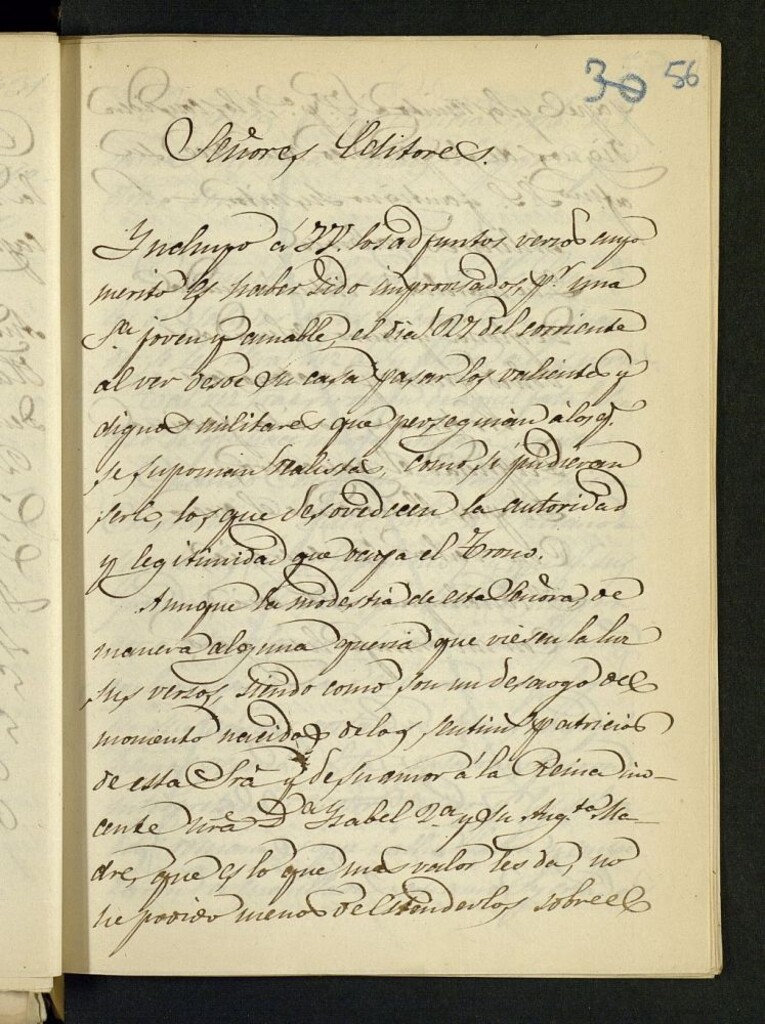 30 56
Señores Editores.
Yncluyo á VV. los adjuntos versos cuyo
merito es haber sido improvisados, pr. una
Sra. joven y amable, el dia 27 del corriente
al ver desde su casa pasar los valientes y
dignos militares que perseguian á los q.
se suponian Realistas, como si pudieran
serlo, los que desovedecen la autoridad
y legitimidad que vaya el Trono.
Aunque la modestia de esta Señora, de
manera alguna queria que viesen la luz
sus versos, siendo como son un desaogo del
momento nacidos de los sentims. patricios
de esta Sra. y de su amor á la Reina ino-
cente nra. Da. Ysabel 2a. y su Augta. Ma-
dre, que es lo que mas valor les da, no
he podido menos de estenderlos sobre el